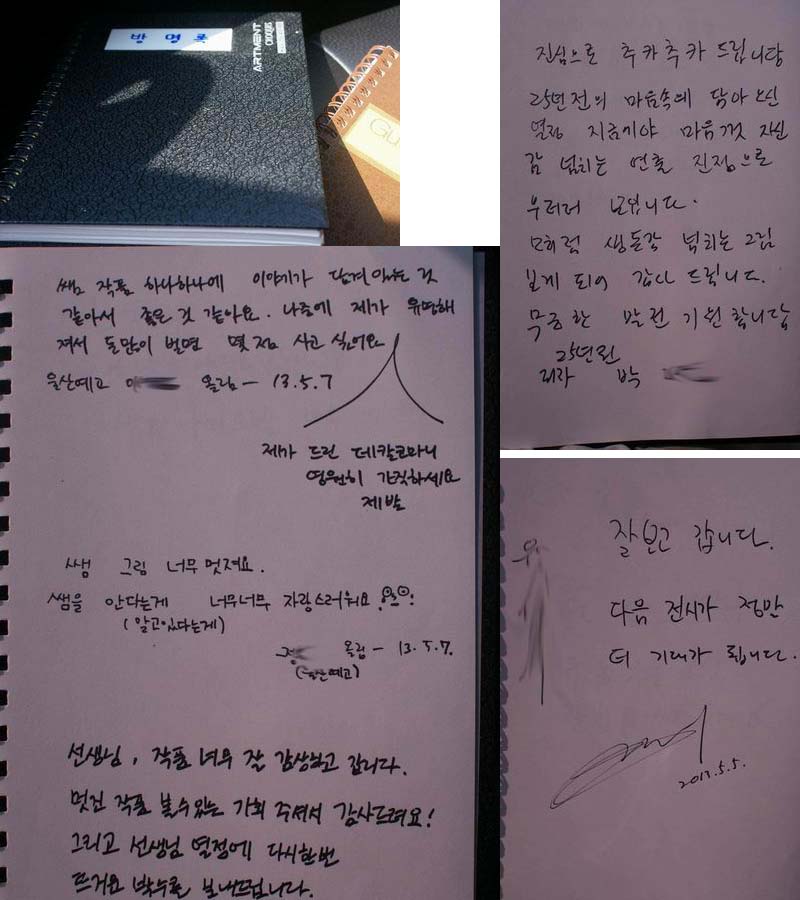 방 명 록
ARTMENT
CROQUIS
GU
진심으로 추카추카 드립니당
25년전의 마음속에 담아 논
열정 지금기야 마음껏 자신
감 넘치는 연출 진정으로
우러러 보입니다.
생동감 넘치는 그림
보게 되어 감사 드립니다.
무궁한 발전 기원 합니답
25년된
박
쌤 작품 하나하나에 이야기가 담겨있는 것
같아서 좋은 것 같아요. 나중에 제가 유명해
져서 돈많이 벌면 몇점 사고 싶어요
울산예고 올림- 13.5.7
제가 드린 데칼코마니
영원히 간직하세요
제발
쌤 그림 너무 멋져요.
쌤을 안다는게 너무너무 자랑스러워요
(알고있다는게)
정 올림- 13.5.7.
(울산예고)
선생님, 작품 너무 잘 감상하고 갑니다.
멋진 작품 볼수있는 기회 주셔서 감사드려요!
그리고 선생님 열정에 다시한번
뜨거운 박수를 보내드립니다.
잘보고 갑니다.
다음 전시가 정말
더 기대가 됩니다.
2013.5.5.